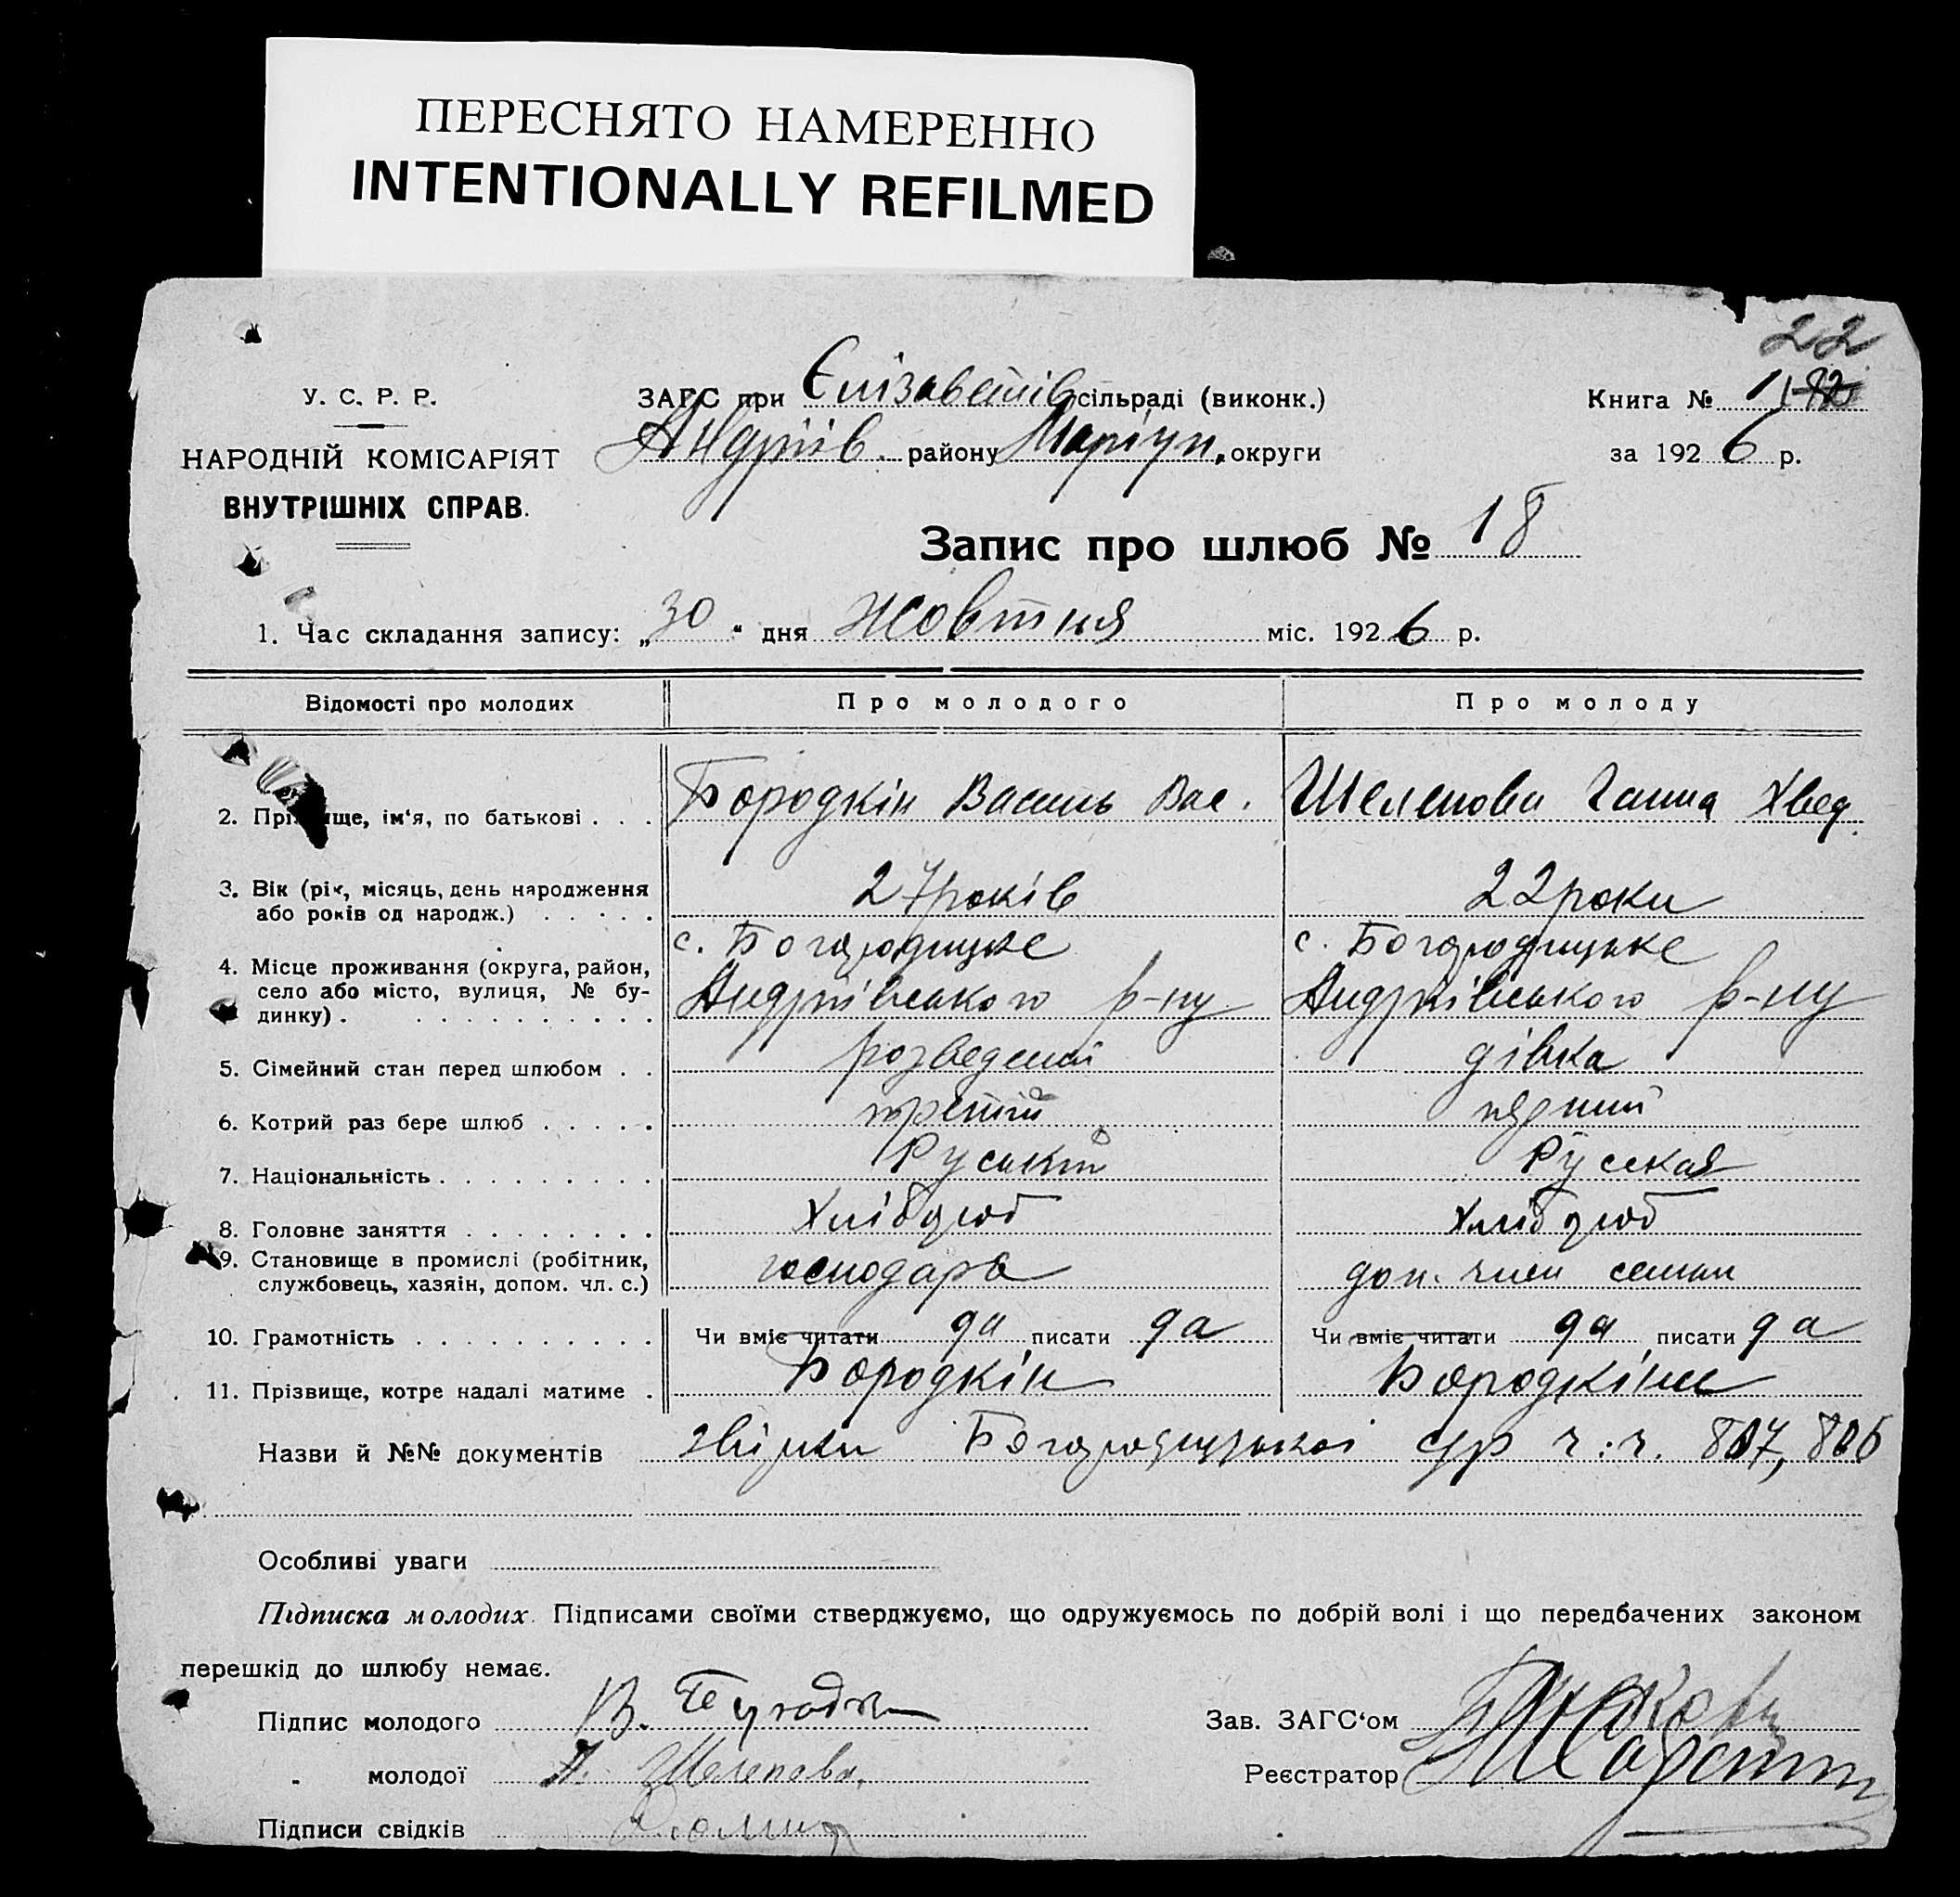 ПЕРЕСНЯТО НАМЕРЕННО
INTENTIONALLY REFILMED
22
У. С. Р. Р.
НАРОДНІЙ КОМІСАРІЯТ
ВНУТРІШНІХ СПРАВ.
ЗАГС при Єлізаветів сільраді (виконк.)
Андріїв. району Маріуп. округи
Книга № 1
за 1926 р.
Запис про шлюб № 18
1. Час складання запису: „30“ дня Жовтня міс. 1926 р.
Відомості про молодих Про молодого Про молоду
2. Прізвище, ім‘я, по батькові . . . Бородкін Василь Вас. Шелепова Ганна Хвед.
3. Вік (рік, місяць, день народження або років од народж.) . . . . . 27 років 22 роки
4. Місце проживання (округа, район, село або місто, вулиця, № будинку) . . . . . . . . . .
с. Богородицке с. Богородицьке
Андріївського р-ну Андріївського р-ну
5. Сімейний стан перед шлюбом . . розведений дівка
6. Котрий раз бере шлюб . . . . . третій перший
7. Національність . . . . . . . . . Руський Русская
8. Головне заняття . . . . . . . . Хлібороб Хлібороб
9. Становище в промислі (робітник, службовець, хазяін, допом. чл. с.) господарь доп. член семьи
10. Грамотність . . . . . . . . . . Чи вміє читати да писати да Чи вміє читати да писати да
11. Прізвище, котре надалі матиме . Бородкін Бородкіна
Назви й №№ документів Богородицької с/р ч.ч. 807, 806
Особливі уваги
Підписка молодих. Підписами своїми стверджуємо, що одружуємось по добрій волі і що передбачених законом
перешкід до шлюбу немає.
Підпис молодого В.
Зав. ЗАГС‘ом
„ молодої Шелепова
Реєстратор
Підписи свідків